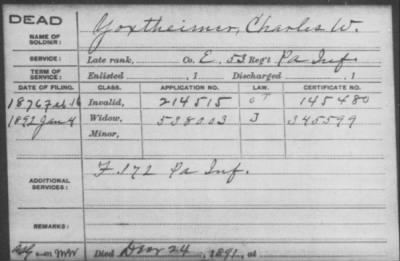 DEAD
NAME OF SOLDIER: Yoxtheimer, Charles W.
SERVICE: Late rank, Co. E. 53 Reg't Pa Inf.
TERM OF SERVICE: Enlisted , 1 Discharged , 1
DATE OF FILING. CLASS. APPLICATION NO. LAW. CERTIFICATE NO.
1876 Feb 16 Invalid, 214515 145480
1892 Jan 4 Widow, 538003 J 345599
Minor,
ADDITIONAL SERVICES: F 172 Pa Inf.
REMARKS:
Died Dec 24, 1891, at